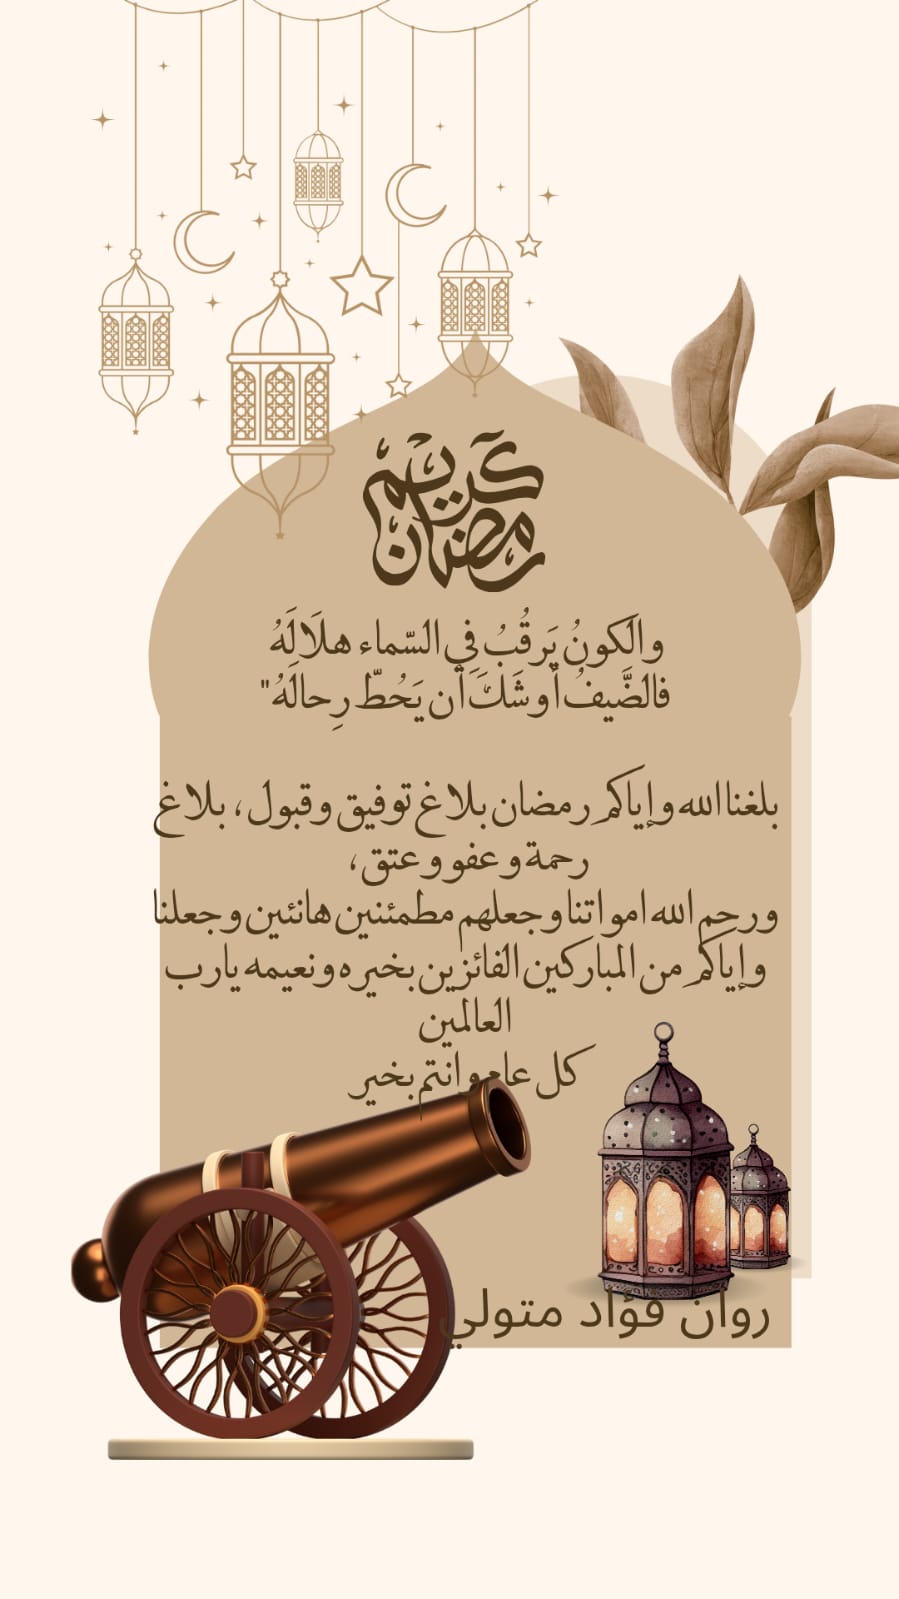 رمضان كريم
والكونُ يَرقُبُ فِي السّماء هلَالَهُ
فالضَّيفُ أوشَكَ أن يَحُطّ رِحالَهُ"
بلغنا الله وإياكم رمضان بلاغ توفيق وقبول ، بلاغ
رحمة وعفو وعتق ،
ورحم الله امواتنا وجعلهم مطمئنين هانئين وجعلنا
وإياكم من المباركين الفائزين بخيره ونعيمه يارب
العالمين
كل عام وانتم بخير
روان فؤاد متولي